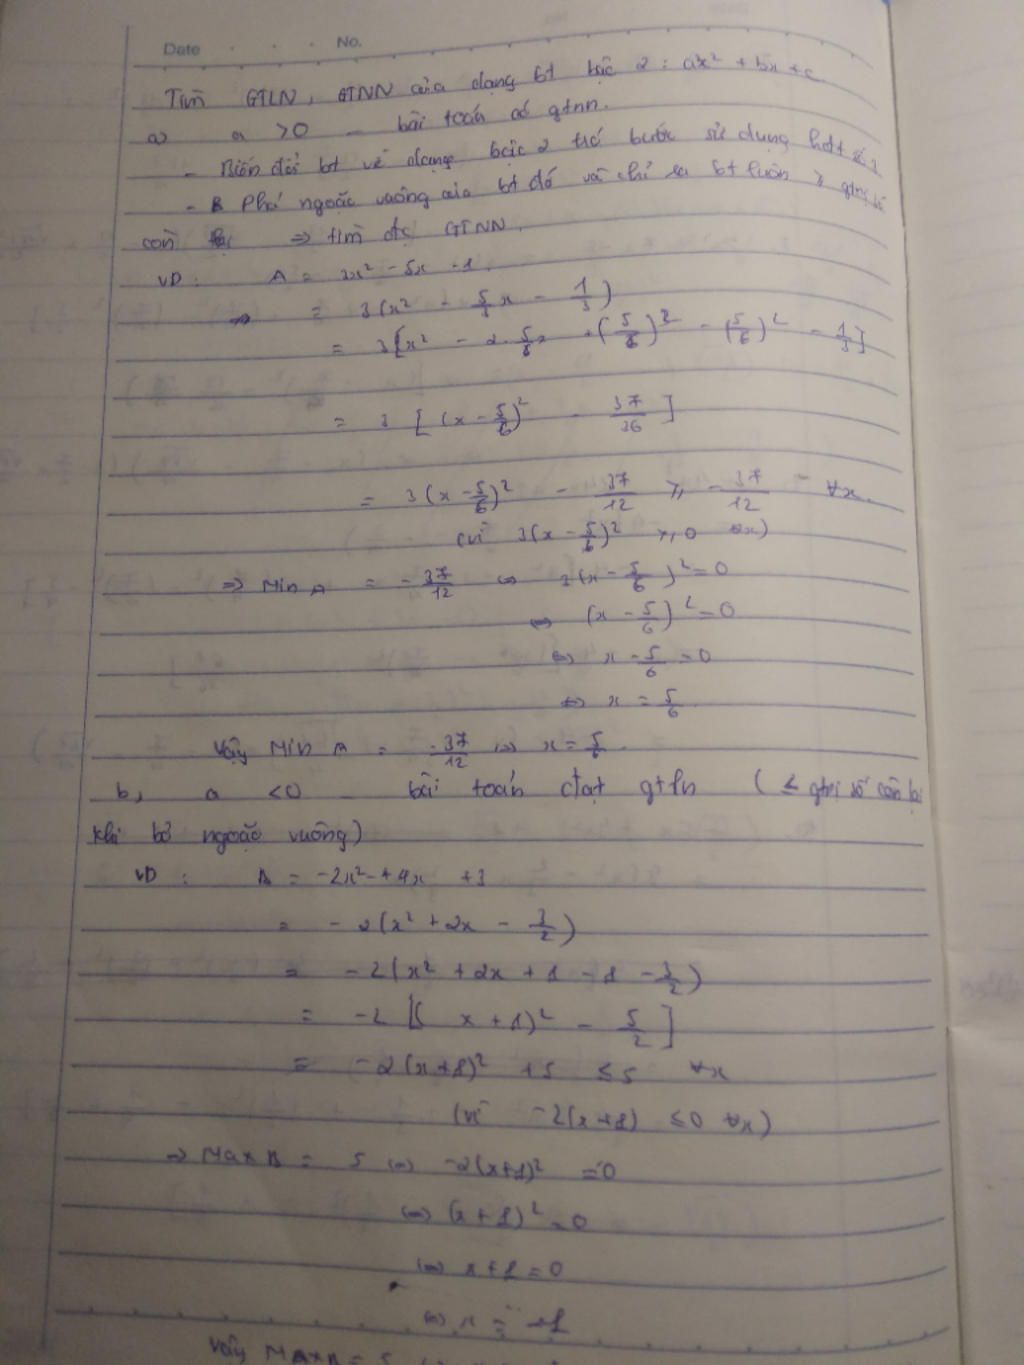 Date No.
Tìm GTLN, GTNN của dạng bt bậc 2 : ax² + bx + c
a) a > 0 – bài toán có gtnn.
- Biến đổi bt về dạng bậc 2 trừ bước sử dụng hđt số
- Phá ngoặc vuông của bt đó và chỉ ra bt luôn ≥ gtrị số
còn lại ⇒ tìm đc GTNN.
VD : A = 3x² - 5x - 1.
= 3(x² - 5/3 x - 1/3)
= 3[x² - 2. 5/6 x + (5/6)² - (5/6)² - 1/3]
= 3 [(x - 5/6)² - 37/36]
= 3(x - 5/6)² - 37/12 ≥ - 37/12 ∀x.
(vì 3(x - 5/6)² ≥ 0 ∀x)
⇒ Min A = - 37/12 ⇔ 3(x - 5/6)² = 0
⇔ (x - 5/6)² = 0
⇔ x - 5/6 = 0
⇔ x = 5/6
Vậy Min A = - 37/12 ⇔ x = 5/6.
b, a < 0 – bài toán đạt gtln ( ≤ gtrị số còn lại
khi bỏ ngoặc vuông)
VD : = -2x² - + 4x + 3
= - 2(x² + 2x - 3/2)
= - 2(x² + 2x + 1 - 1 - 3/2)
= -2 [( x + 1)² - 5/2]
= - 2(x + 1)² + 5 ≤ 5 ∀x
(vì - 2(x + 1) ≤ 0 ∀x)
⇒ Max B = 5 ⇔ - 2(x+1)² = 0
⇔ (x + 1)² = 0
⇔ x + 1 = 0
⇔ x = -1
Vậy Max B = 5